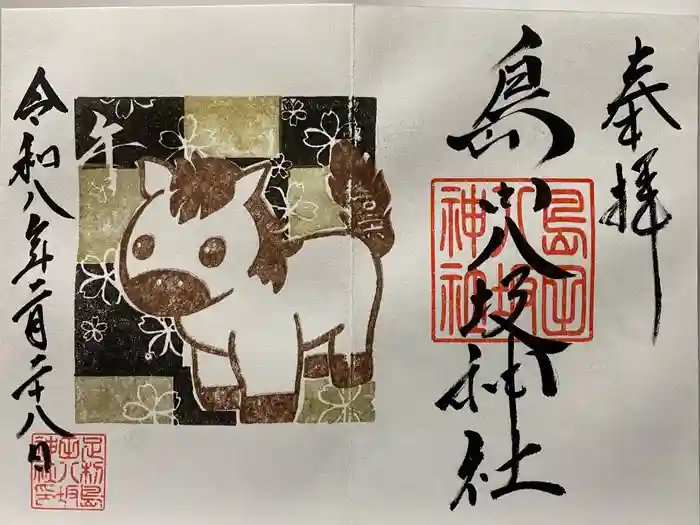 奉拝
島田八坂神社
島田
八坂
神社
午
令和八年二月二十八日
足利島
田八坂
神社印